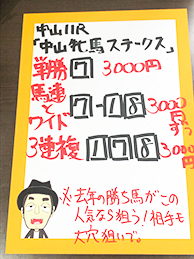 中山11R
「中山牝馬ステークス」
単勝 7 3000円
馬連とワイド 7-1 8 3000円ずつ
3連複 1 7 8 3000円
※去年の勝ち馬がこの
人気なら狙う!相手も
大穴狙いで。